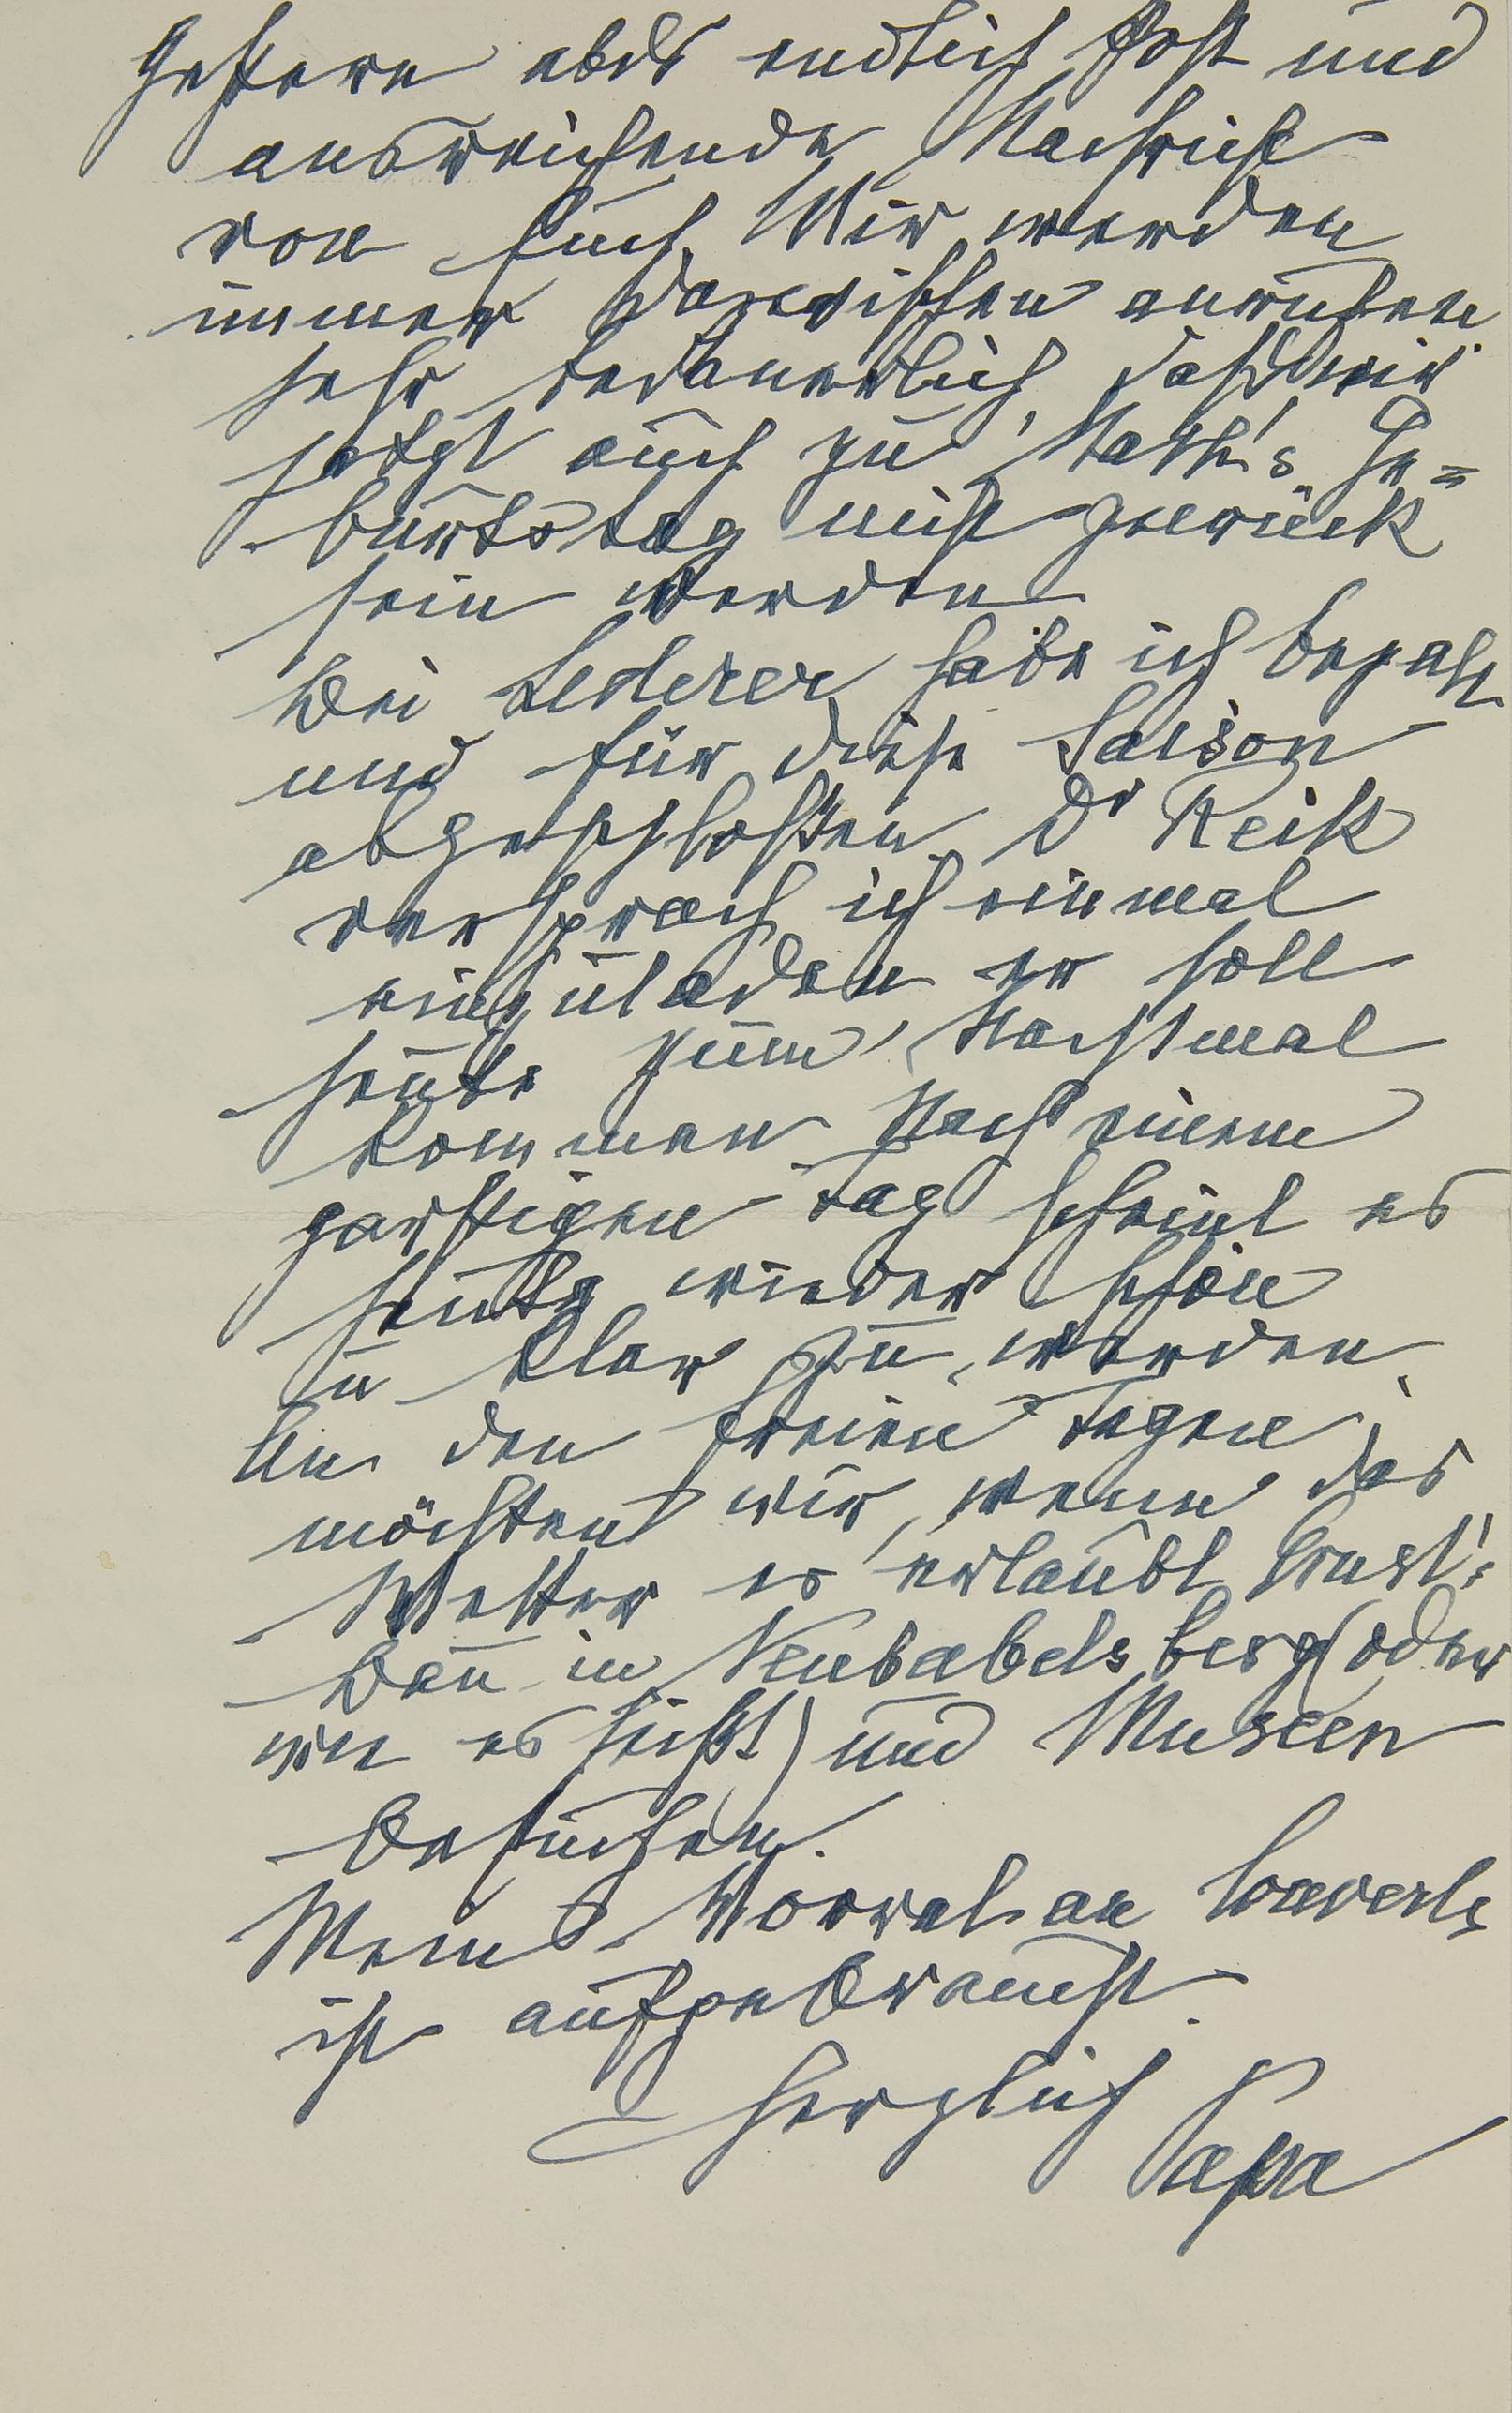 Gestern abds endlich Post und
ausreichende Nachricht
von Euch. Wir werden
immer dazwischen anrufen
sehr bedauerlich, daß wir
jetzt auch zu Math's Ge=
burtstag nicht zurück
sein werden
Bei Lederer habe ich bezahlt
und für diese Saison
abgeschlossen. Dr Reik
versprach ich einmal
einzuladen er soll
heute zum Nachtmal
kommen. Nach einem
garstigen Tag scheint es
heute wieder schön
u klar zu werden.
An den freien Tagen
möchten wir, wenn das
Wetter es erlaubt Ernst's
Bau in Neubabelsberg (oder
wie es heißt) und Museen
besuchen.
Mein Vorrat an
ist aufgebraucht.
Herzlich
Papa